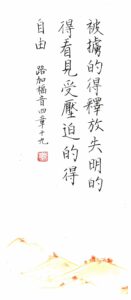 被擄的得釋放失明的
得看見受壓迫的得
自由
路加福音四章十九